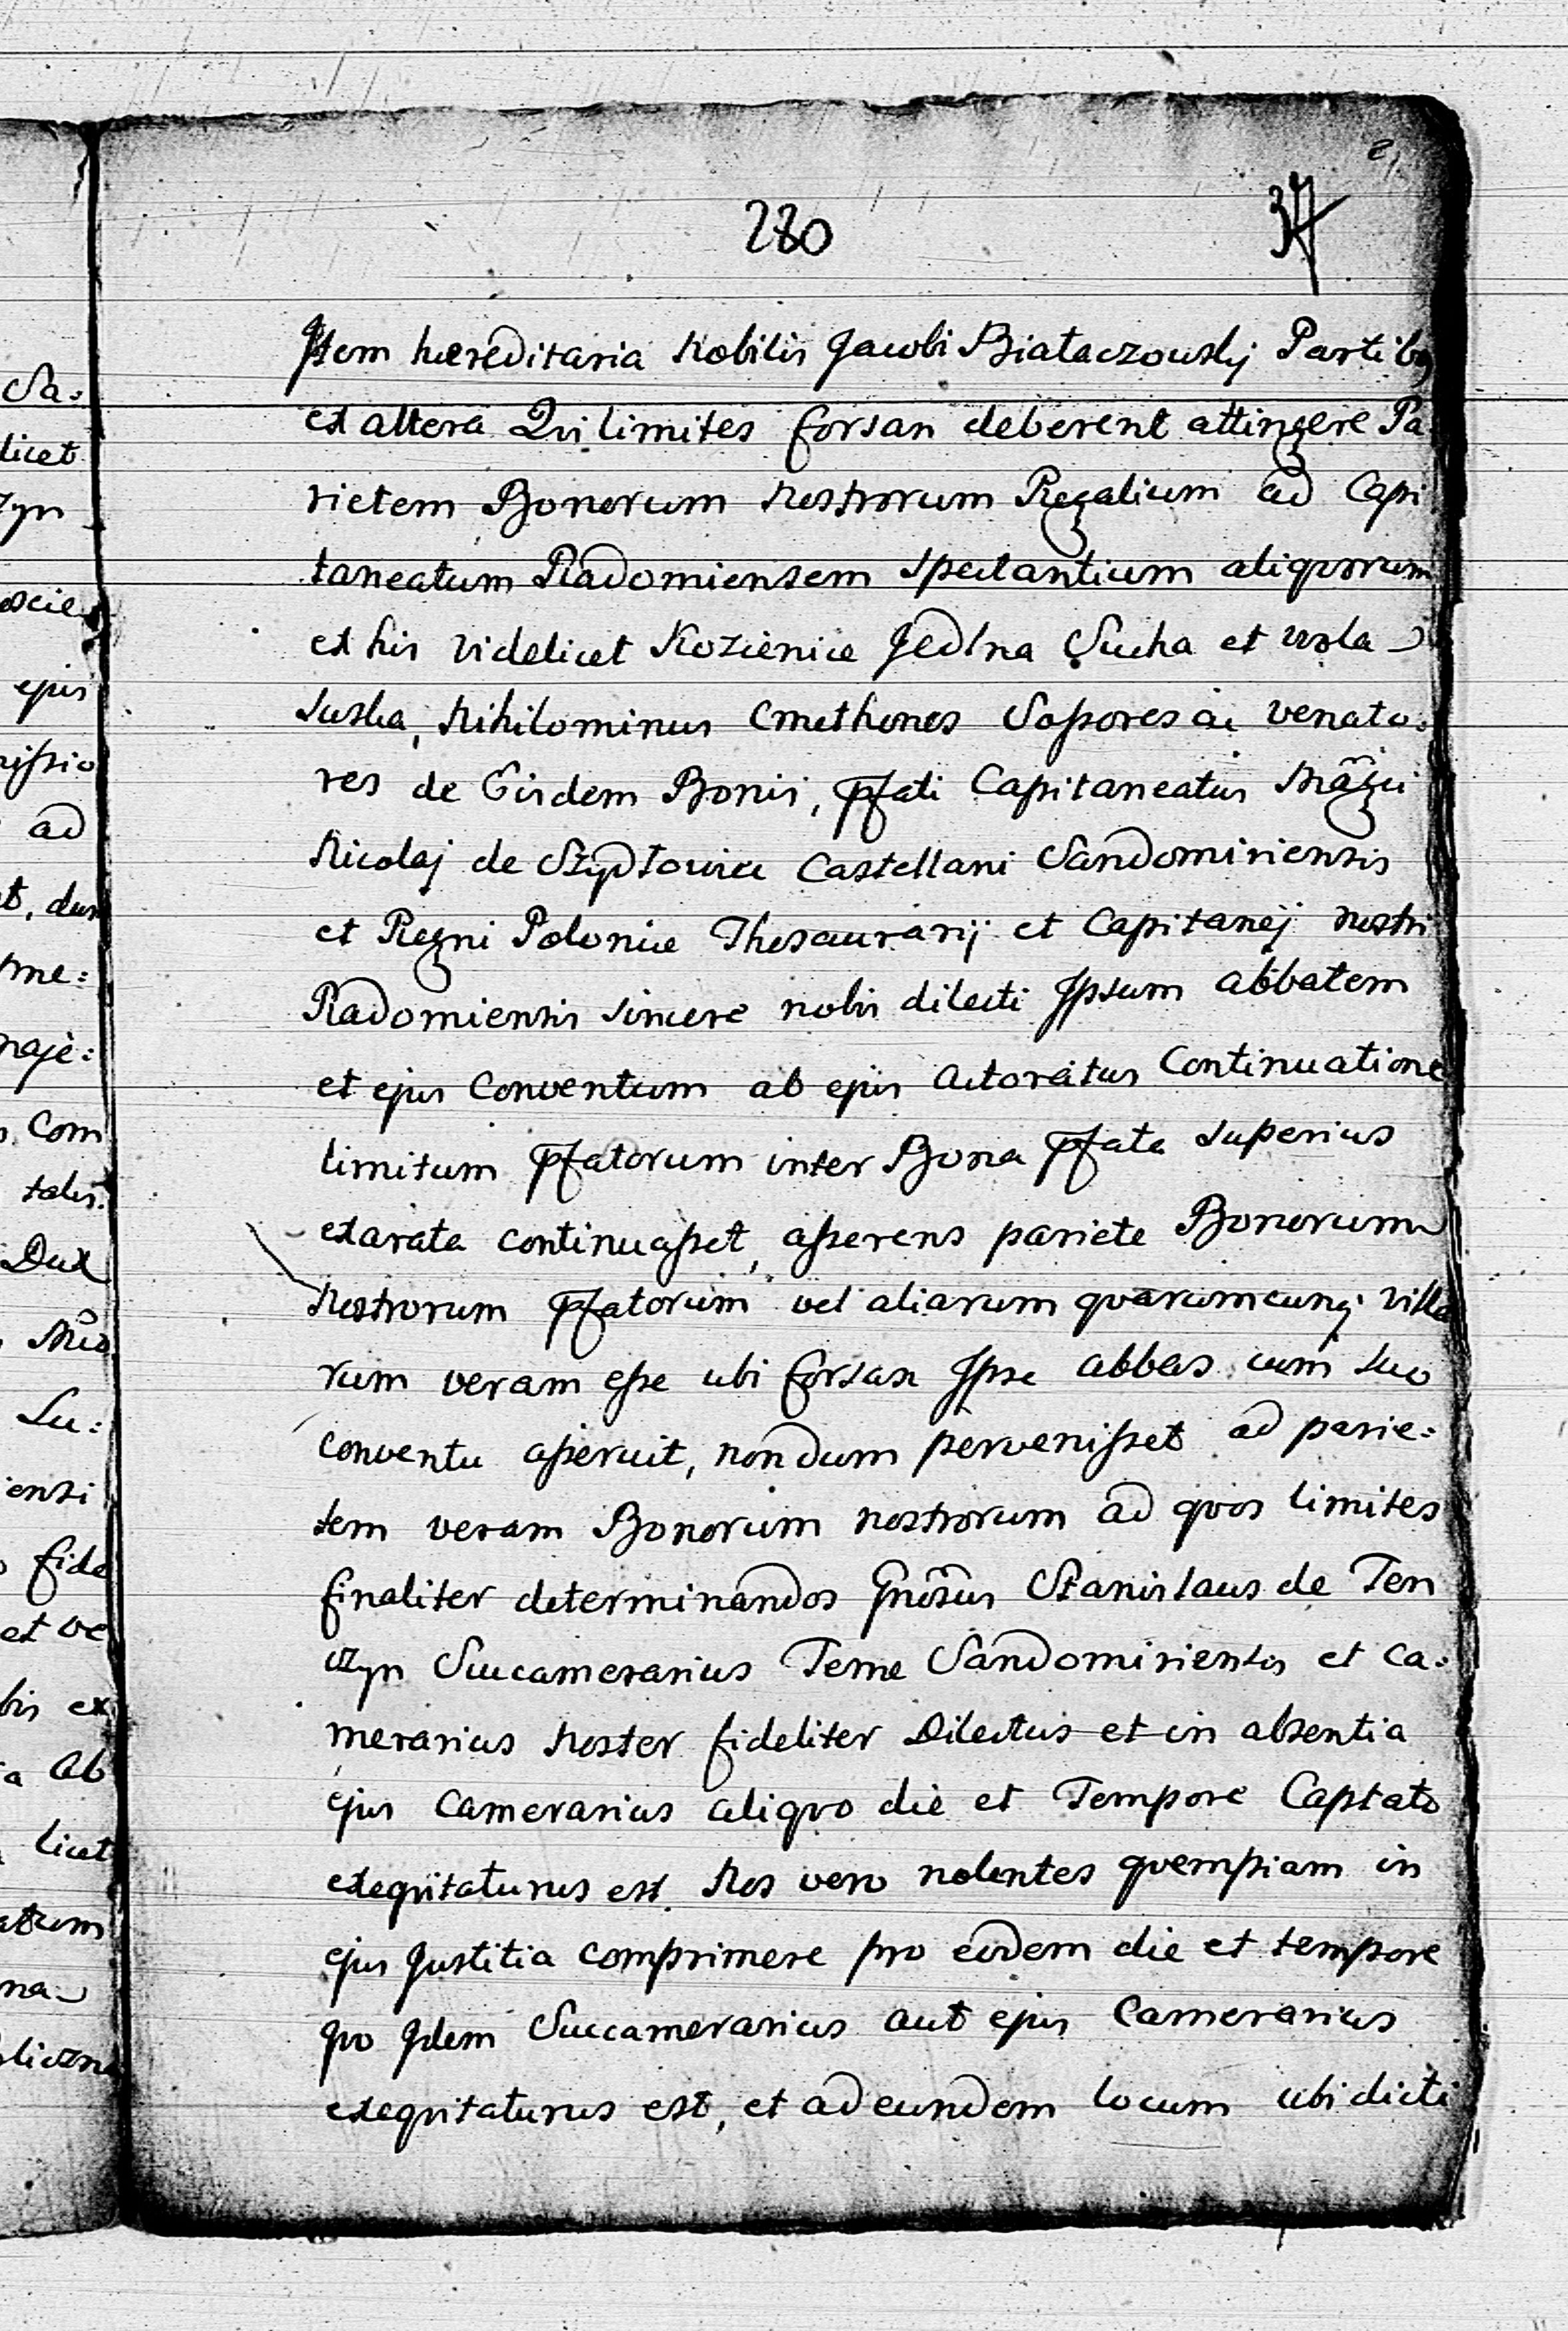 280
37
Item hæreditaria Nobilis Jacobi Białaczowskj Partibq
ex altera Qvi limites forsan deberent attingere Pa
rietem Bonorum Nostrorum Regalium ad Capi
taneatum Radomiensem spectantium aliqvorum
ex his videlicet Kozienice Jedlna Sucha et Wola
suska, Nihilominus Cmethones Sapores ac venato:
res de Eisdem Bonis, pfati Capitaneatus Mãgci
Nicolaj de Szydłowiec Castellani Sandomiriensis
et Regni Poloniæ Thesaurarij et Capitanej Nostri
Radomiensis sincere nobis dilecti Ipsum abbatem
et ejus Conventum ab ejus Actoratus Continuatione
limitum pfatorum inter Bona pfata superius
exarata continuasset, asserens pariete Bonorum
Nostrorum pfatorum vel aliarum qvarumcunqj Villa
rum veram esse ubi forsan Ipse abbas cum suo
conventu asseruit, nondum pervenisset ad parie:
tem veram Bonorum nostrorum ad qvos limites
finaliter determinandos Gnõsus Stanislaus de Ten
czyn Succamerarius Terræ Sandomiriensis et Ca:
merarius Noster fideliter Dilectus et in absentia
ejus Camerarius aliqvo die et Tempore Captato
exeqvitaturus est. Nos vero nolentes qvempiam in
ejus Justitia comprimere pro eodem die et tempore
qvo Idem Succamerarius aut ejus Camerarius
exeqvitaturus est, et ad eundem locum ubi dicti